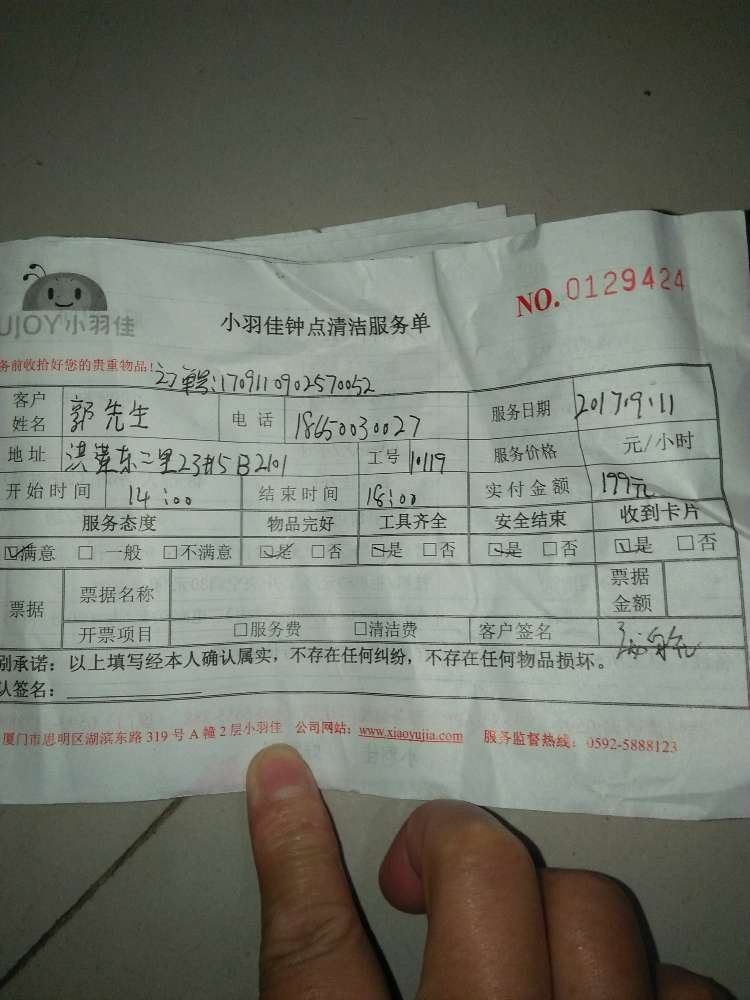 UJOY小羽佳
小羽佳钟点清洁服务单
NO.0129424
务前收拾好您的贵重物品!
订单号:1709110902570052
客户姓名 郭先生 电话 18650030027 服务日期 2017.9.11
地址 洪莲东二里23#5B2101 工号 10119 服务价格 元/小时
开始时间 14:00 结束时间 18:00 实付金额 199元
服务态度 物品完好 工具齐全 安全结束 收到卡片
☑满意 □一般 □不满意 ☑是 □否 ☑是 □否 ☑是 □否 ☑是 □否
票据 票据名称 票据金额
开票项目 □服务费 □清洁费 客户签名
别承诺：以上填写经本人确认属实，不存在任何纠纷，不存在任何物品损坏。
认签名：
厦门市思明区湖滨东路319号A幢2层小羽佳 公司网站：www.xiaoyujia.com 服务监督热线：0592-5888123